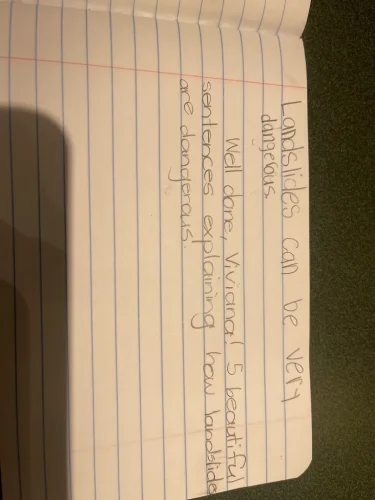 Landslides can be very
dangerous.
Well done, Viviana! 5 beautiful
sentences explaining how landslide
are dangerous.